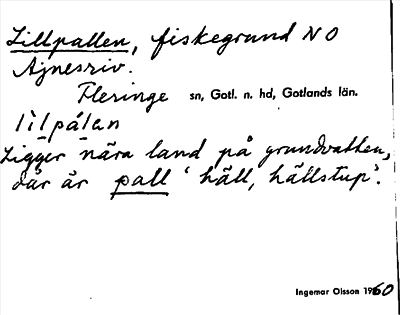 Lillpallen, fiskegrund NO
Ajnesriv.
Fleringe sn, Gotl. n. hd, Gotlands län.
lilpálan
Ligger nära land på grundvatten,
där är pall ‘häll, hällstup’.
Ingemar Olsson 1960